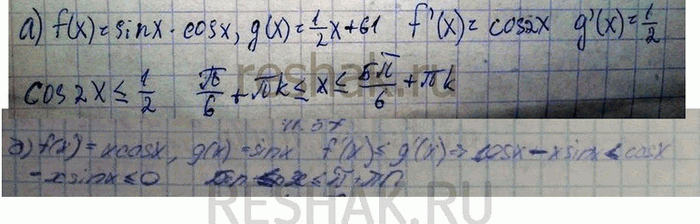 а) f(x)=sinx·cosx, g(x)=1/2x+61 f'(x)=cos2x g'(x)=1/2
cos2x≤1/2 π/6+πk≤x≤5π/6+πk
reshak.ru
f(x)=xcosx, g(x)=sinx f'(x)≤g'(x)=> cosx-xsinx≤cosx
-xsinx≤0
RESHAK.RU